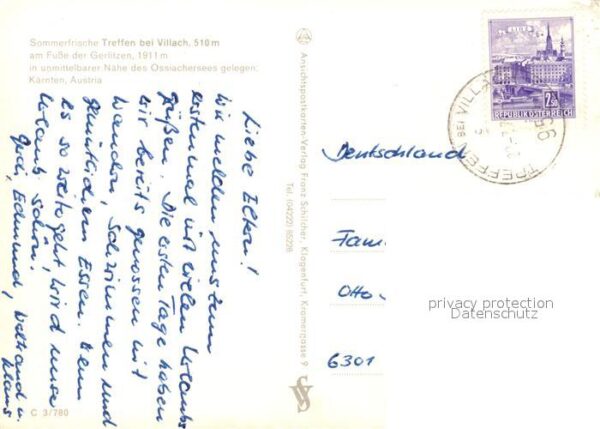 Sommerfrische Treffen bei Villach, 510 m
am Fuße der Gerlitzen, 1911 m
in unmittelbarer Nähe des Ossiachersees gelegen;
Kärnten, Austria
Liebe Eltern!
Wir melden uns zum
erstenmal mit vielen Urlaubs
grüßen. Die ersten Tage haben
wir bereits genossen mit
Wandern, Schwimmen und
gemütlichem Essen. Wenn
es so weiter geht, wird unser
Urlaub schön.
Gudi, Edmund, Weltraud u.
Klaus
C 3/780
Ansichtspostkarten-Verlag Franz Schilcher, Klagenfurt, Kramergasse 9
Tel. (04222) 85228
2.50
REPUBLIK ÖSTERREICH
TREFFEN BEI VILL
Deutschland
Fam
Otto-
6301
privacy protection
Datenschutz